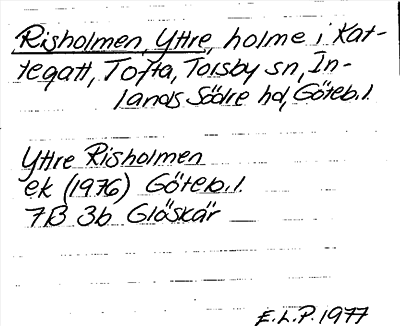 Risholmen, Yttre, holme i Kat-
tegatt, Tofta, Torsby sn, In-
lands Södre hd, Göteb.l.
Yttre Risholmen
ek (1976) Göteb.l.
7B 3b Glöskär
E.L.P. 1977